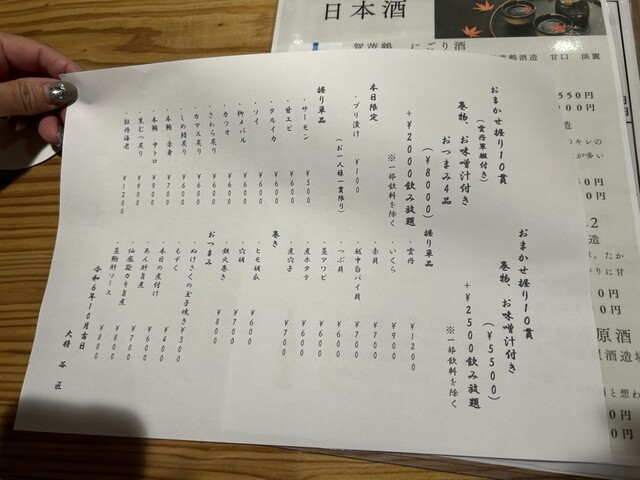 おまかせ握り10貫
(雲丹軍艦付き)
巻物、お味噌汁付き
おつまみ4品
(¥8000)
+¥2000飲み放題
※一部飲料を除く
本日限定
・ブリ漬け ¥100
(お一人様一貫限り)
握り単品
・サーモン ¥500
・甘エビ ¥600
・タルイカ ¥600
・ソイ ¥600
・柳メバル ¥600
・カツオ ¥600
・さわら炙り ¥600
・カマス炙り ¥600
・しめ鯖炙り ¥600
・本鮪 赤身 ¥700
・本鮪 中トロ ¥900
・黒むつ炙り ¥900
・牡丹海老 ¥1200
おまかせ握り10貫
巻物、お味噌汁付き
(¥5500)
+¥2500飲み放題
※一部飲料を除く
握り単品
・雲丹 ¥1200
・いくら ¥900
・赤貝 ¥700
・越中白バイ貝 ¥700
・つぶ貝 ¥600
・蒸アワビ ¥600
・煮ホタテ ¥600
・煮穴子 ¥700
巻き
・ヒモ胡瓜 ¥600
・穴胡 ¥700
・鉄火巻き ¥800
おつまみ
・ぬけさくの玉子焼き ¥300
・もずく ¥400
・本日の煮付け ¥600
・あん肝旨煮 ¥700
・仙鳳趾カキ旨煮 ¥800
・蒸鮑肝ソース ¥800
令和6年10月吉日
大将 谷 匠
日本酒
賀茂鶴 にごり酒
賀茂鶴酒造 甘口 淡麗
550円
原酒